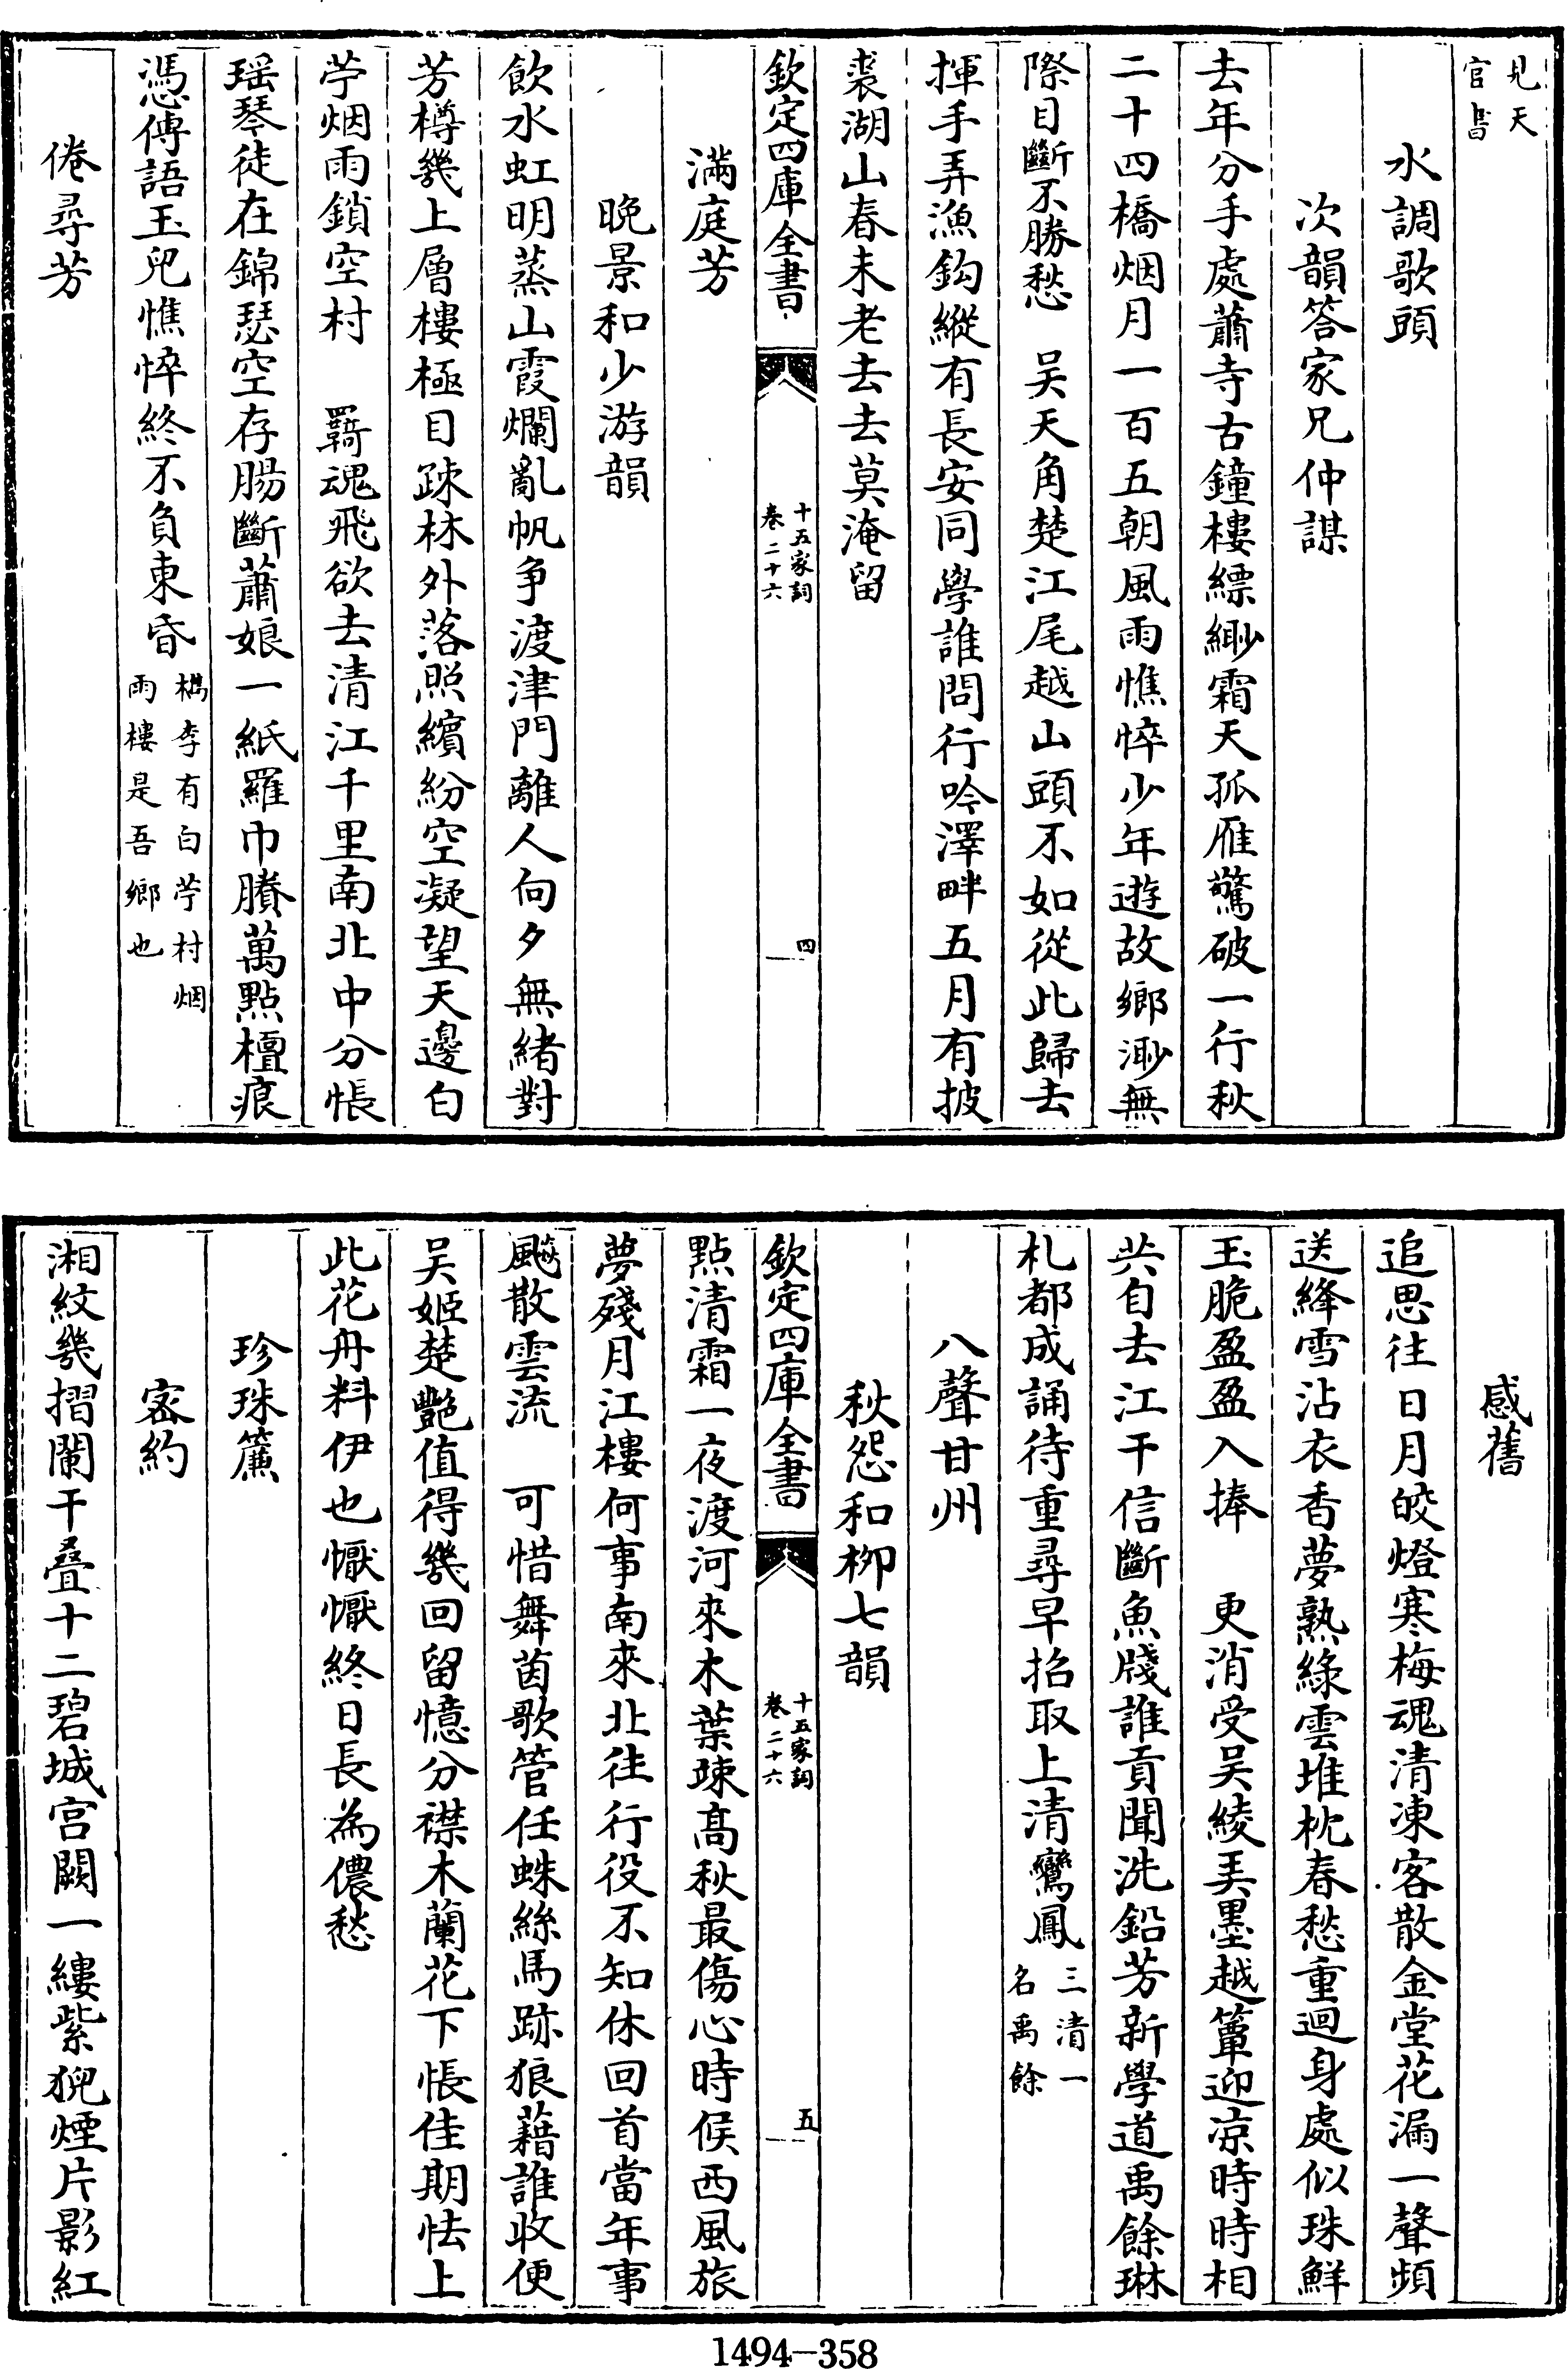 見天
官書
水調歌頭
次韻答家兄仲謀
去年分手處蕭寺古鐘樓縹緲霜天孤雁驚破一行秋
二十四橋烟月一百五朝風雨憔悴少年遊故鄉渺無
際目斷不勝愁　吴天角楚江尾越山頭不如從此歸去
揮手弄漁鈎縱有長安同學誰問行吟澤畔五月有披
裘湖山春未老去去莫淹留
欽定四庫全書
十五家詞
卷二十六
四
滿庭芳
晚景和少游韻
飲水虹明蒸山霞爛亂帆争渡津門離人向夕無緒對
芳樽幾上層樓極目疎林外落照繽紛空凝望天邊白
苧烟雨鎖空村　羇魂飛欲去清江千里南北中分悵
瑶琴徒在錦瑟空存腸斷蕭娘一紙羅巾賸萬點檀痕
憑傳語玉兒憔悴終不負東昏
檇李有白苧村烟
雨樓是吾鄉也
倦尋芳
感舊
追思往日月皎燈寒梅魂清凍客散金堂花漏一聲頻
送絳雪沾衣香夢熟綠雲堆枕春愁重迴身處似珠鮮
玉脆盈盈入捧　更消受吴綾弄墨越簟迎凉時時相
共自去江干信斷魚牋誰貢聞洗鉛芳新學道禹餘琳
札都成誦待重尋早招取上清鸞鳳
三清一
名禹餘
八聲甘州
秋怨和栁七韻
欽定四庫全書
十五家詞
卷二十六
五
點清霜一夜渡河來木葉疎高秋最傷心時候西風旅
夢殘月江樓何事南來北往行役不知休回首當年事
飈散雲流　可惜舞茵歌管任蛛絲馬跡狼藉誰收便
吴姬楚艷值得幾回留憶分襟木蘭花下悵佳期怯上
此花舟料伊也懨懨終日長為儂愁
珍珠簾
密約
湘紋幾摺闌干叠十二碧城宫闕一縷紫猊煙片影紅
1494—358